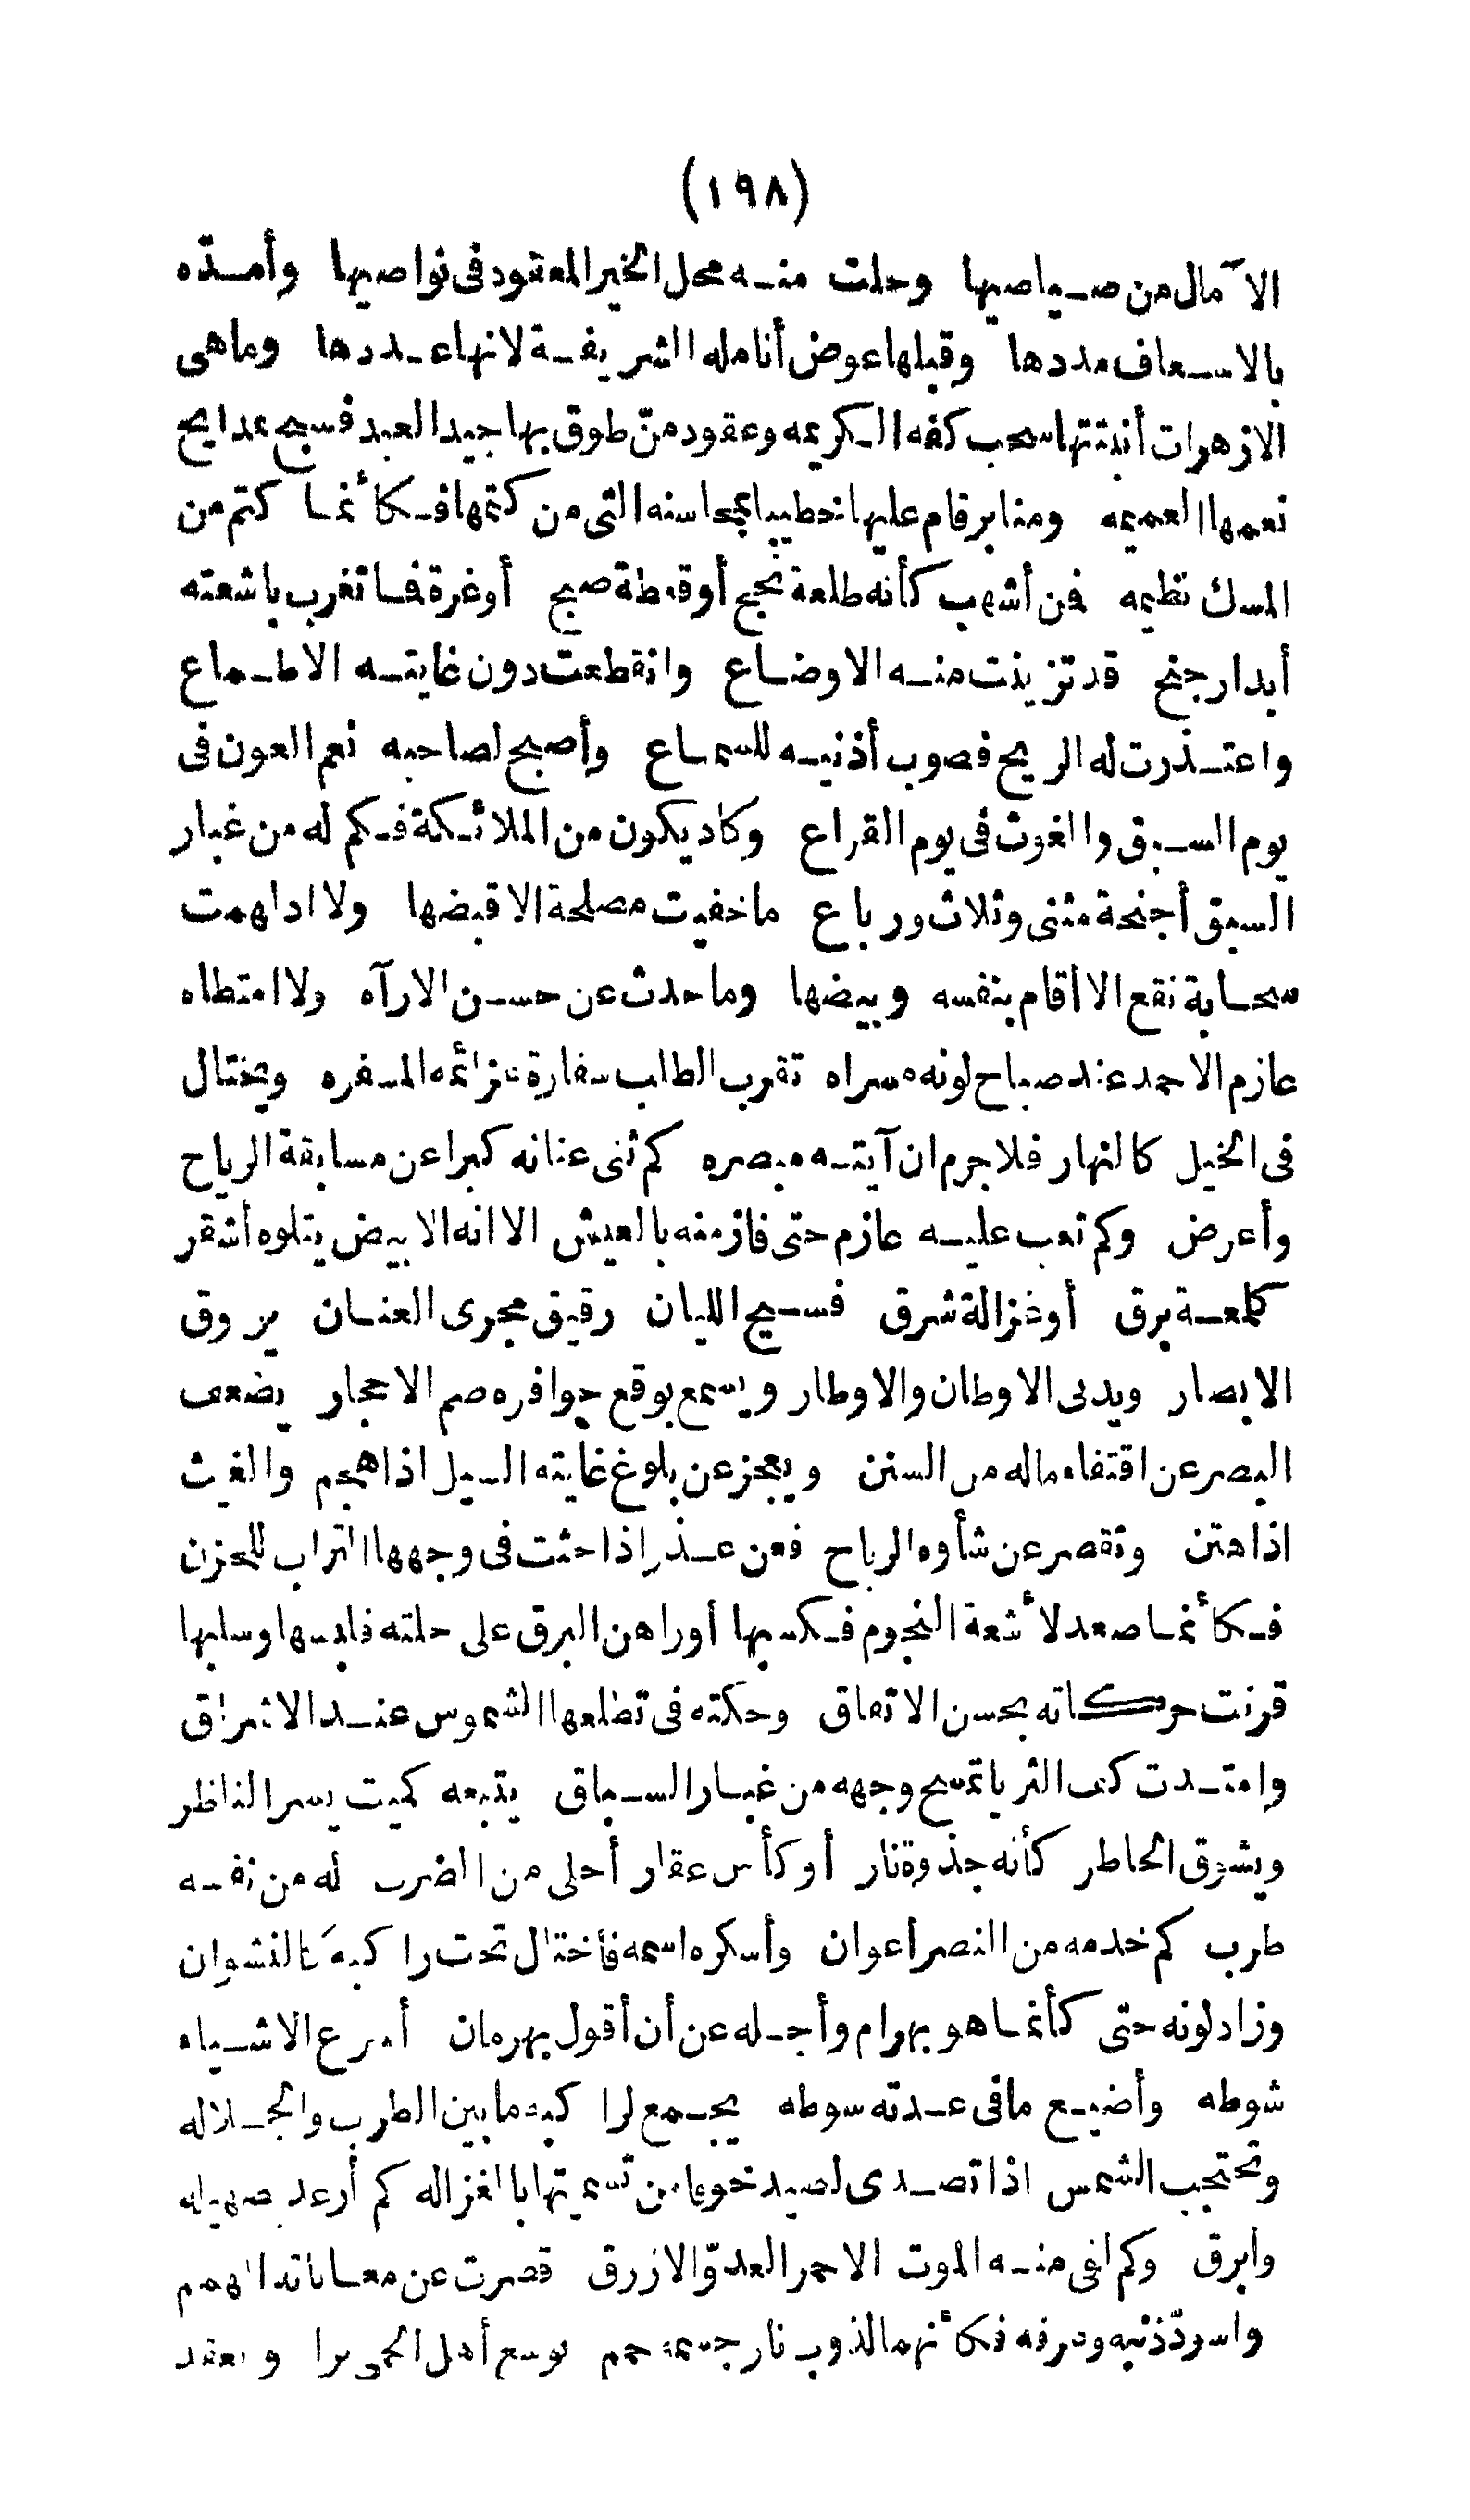 (١٩٨)
الآمال من صياصيها وحلت منه محل الخير المعقود فى نواصيها وأمدّه
بالاسعاف مددها وقبلها عوض أنامله الشريفة لانها عددها وما هى
الا زهرات أنبتتها سحب كفه الكريمه وعقود منّ طوق بها جيد العبد فسجع بمدايح
نعمها العميمه ومنابر قام عليها خطيبا بمحاسنه التى من كتمها فكأنما كتم من
المسك نظيمه فمن أشهب كأنه طلعة نجح أو قطة صبح أو غرة فما تغرب باشعته
أبدار جنح قد تزينت منه الاوضاع وانقطعت دون غايته الاطماع
واعتذرت له الريح فصوب أذنيه للسماع وأصبح لصاحبه نعم العون فى
يوم السبق والغوث فى يوم القراع وكاد يكون من الملائكة فكم له من غبار
السبق أجنحة مثنى وثلاث ورباع ما خفيت مصلحة الا قبضها ولا ادلهمت
سحابة نقع الا أقام بنفسه وبيضها وما حدث عن حسن الا رآه ولا امتطاه
عازم الا حمد عند صباح لونه مسراه تقرب الطالب سفارة عزائمه المسفره ويختال
فى الخيل كالنهار فلا جرم ان آيته مبصره كم ثنى عنانه كبرا عن مسابقة الرياح
وأعرض وكم تعب عليه عازم حتى فاز منه بالعيش الا انه الابيض يتلوه أشقر
كلمعة برق أو غزالة شرق فسيح اللبان رقيق مجرى العنان يروق
الابصار ويدنى الاوطان والاوطار ويسمع بوقع حوافره صم الاحجار يضعف
البصر عن اقتفاء ماله من السنن ويعجز عن بلوغ غايته السيل اذا هجم والغيث
اذا هتن وتقصر عن شأوه الرياح فمن عذر اذا حثت فى وجهها التراب للحزن
فكأنما صعد لأشعة النجوم فكسبها أو راهن البرق على حلته فلبسها وسلبها
قرنت حركاته بحسن الاتفاق وحكته فى تطلعها الشموس عند الاشراق
وامتدت كف الثريا تمسح وجهه من غبار السباق يتبعه كميت يسر الناظر
ويشوق الخاطر كأنه جذوة نار أو كأس عقار أحلى من الضرب له من نفسه
طرب كم خدمه من النصر أعوان وأسكره اسمه فاختال تحت راكبه كالنشوان
وزاد لونه حتى كأنما هو بهرام وأجله عن أن أقول بهرمان أسرع الاشياء
شوطه وأضيع ما فى عدته سوطه يجمع لراكبه ما بين الطرب والجلاله
وتحتجب الشمس اذا تصدى لصيد خوفا من تسميتها بالغزاله كم أرعد بصهيله
وأبرق وكم لقى منه الموت الاحمر العدوّ الازرق قصرت عن معاناته الهمم
واسودّ ذنبه وعرفه فكأنهما لذوب نار جسمه حمم يوسع أهل الحمى برا ويعقد